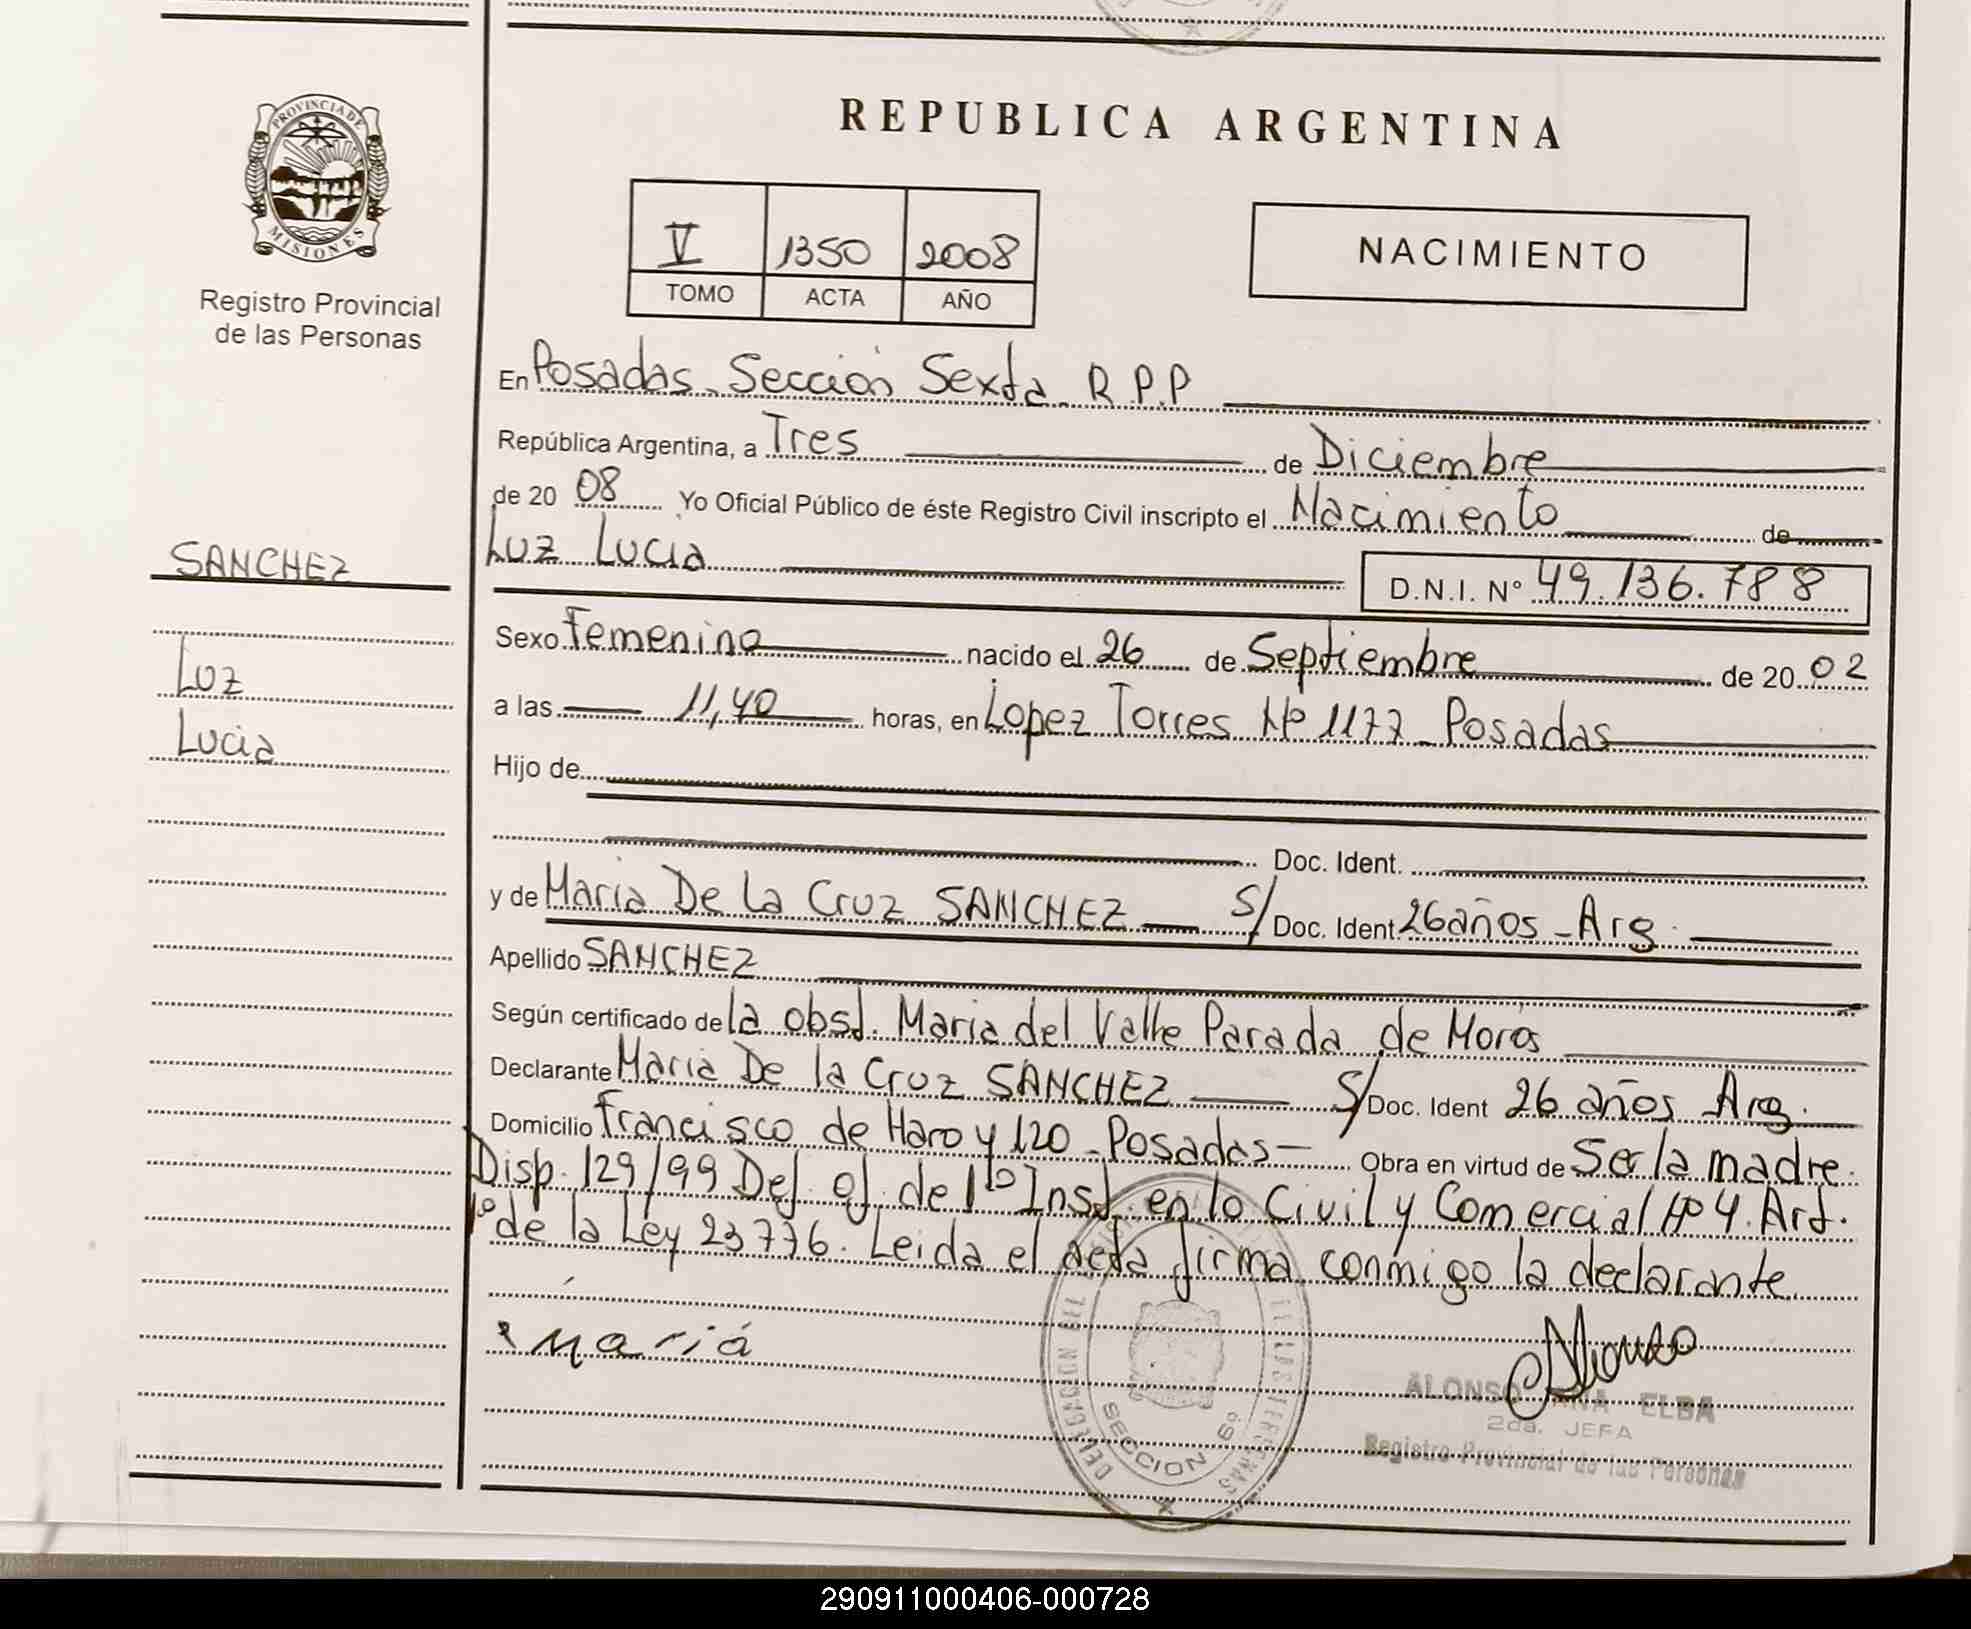 REPUBLICA ARGENTINA
PROVINCIA DE
MISIONES
Registro Provincial
de las Personas
V 1350 2008
TOMO ACTA AÑO
NACIMIENTO
En Posadas. Sección Sexta. R.P.P
República Argentina, a Tres de Diciembre
de 20 08 Yo Oficial Público de éste Registro Civil inscripto el Nacimiento de
Luz Lucia
D.N.I. Nº 49.136.788
SANCHEZ
Luz
Lucia
Sexo Femenino nacido el 26 de Septiembre de 20 02
a las 11,40 horas, en Lopez Torres Nº 1177 Posadas
Hijo de
Doc. Ident.
y de Maria De La Cruz SANCHEZ S/ Doc. Ident. 26 años - Arg.
Apellido SANCHEZ
Según certificado de la obst. Maria del Valle Parada de Moros
Declarante Maria De la Cruz SANCHEZ S/ Doc. Ident 26 años Arg.
Domicilio Francisco de Haro y 120 - Posadas - Obra en virtud de Ser la madre.
Disp. 129/99 Def. of. de 1º Inst. en lo Civil y Comercial Nº 4. Art.
1º de la Ley 23776. Leida el acta firma conmigo la declarante
Mariá
DELEGACION DEL
DE LAS PERSONAS
SECCION 6º
ALONSO ANA ELBA
2da. JEFA
Registro Provincial de las Personas
290911000406-000728